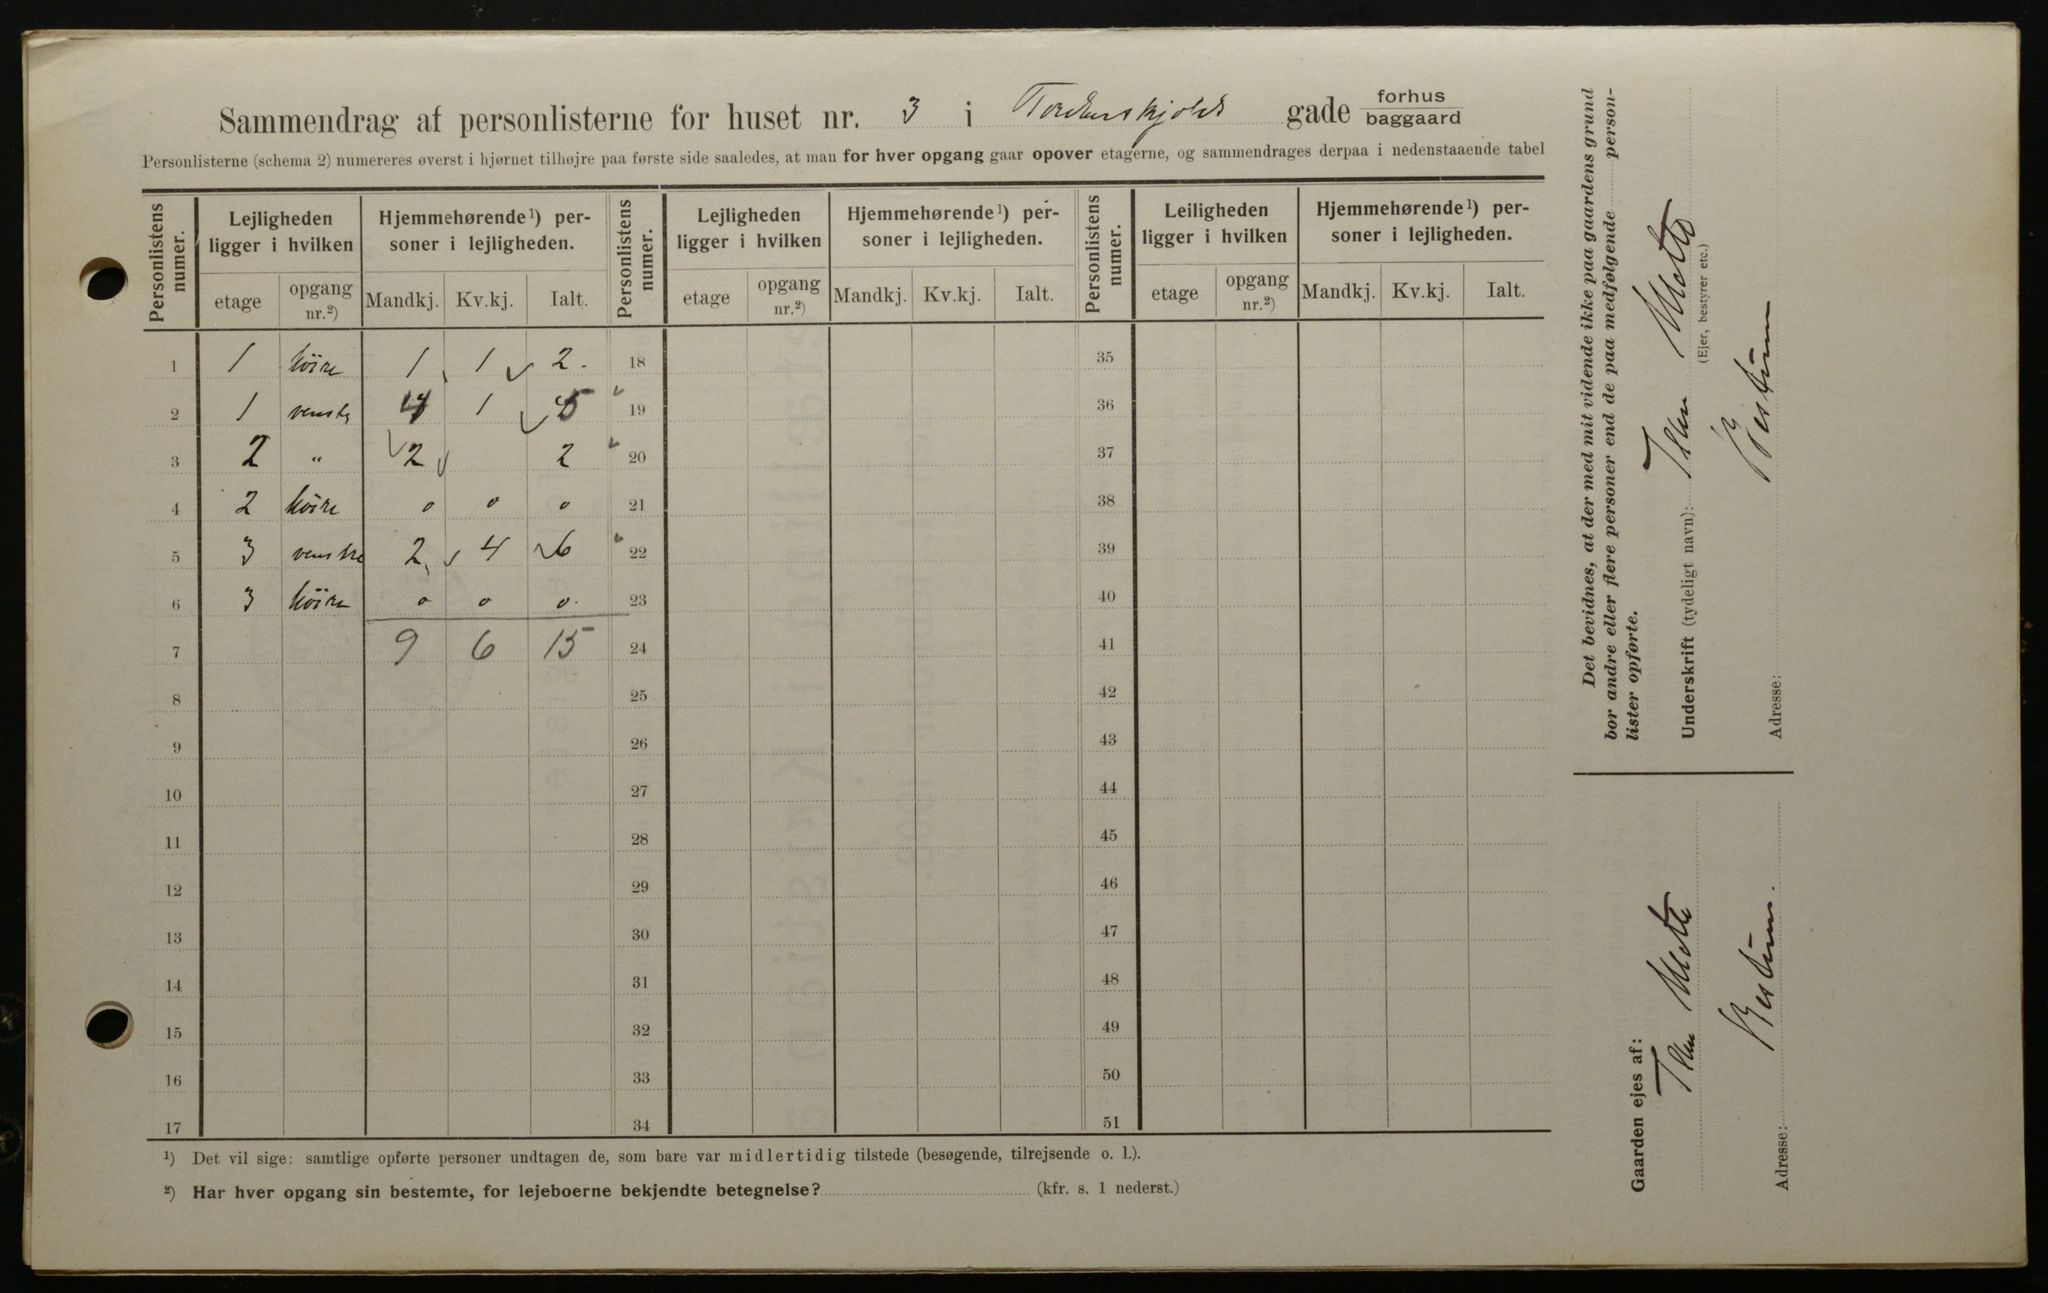 Sammendrag af personlisterne for huset nr. 3 i Tordenskjolds gade forhus baggaard
Personlisterne (schema 2) numereres øverst i hjørnet tilhøjre paa første side saaledes, at man for hver opgang gaar opover etagerne, og sammendrages derpaa i nedenstaaende tabel
Personlistens numer. Lejligheden ligger i hvilken Hjemmehørende¹) personer i lejligheden. Personlistens numer. Lejligheden ligger i hvilken Hjemmehørende¹) personer i lejligheden. Personlistens numer. Leiligheden ligger i hvilken Hjemmehørende¹) personer i lejligheden.
etage opgang nr.²) Mandkj. Kv.kj. Ialt. etage opgang nr.²) Mandkj. Kv.kj. Ialt. etage opgang nr.²) Mandkj. Kv.kj. Ialt.
1 1 høire 1 1 2. 18 35
2 1 venstre 4 1 5 19 36
3 2 " 2 2 20 37
4 2 høire 0 0 0 21 38
5 3 venstre 2 4 6 22 39
6 3 høire 0 0 0. 23 40
7 9 6 15 24 41
8 25 42
9 26 43
10 27 44
11 28 45
12 29 46
13 30 47
14 31 48
15 32 49
16 33 50
17 34 51
¹) Det vil sige: samtlige opførte personer undtagen de, som bare var midlertidig tilstede (besøgende, tilrejsende o. l.).
²) Har hver opgang sin bestemte, for lejeboerne bekjendte betegnelse? (kfr. s. 1 nederst.)
Det bevidnes, at der med mit vidende ikke paa gaardens grund
bor andre eller flere personer end de paa medfølgende person-
lister opførte.
Underskrift (tydeligt navn):
(Ejer, bestyrer etc.)
Adresse:
Gaarden ejes af:
Adresse: